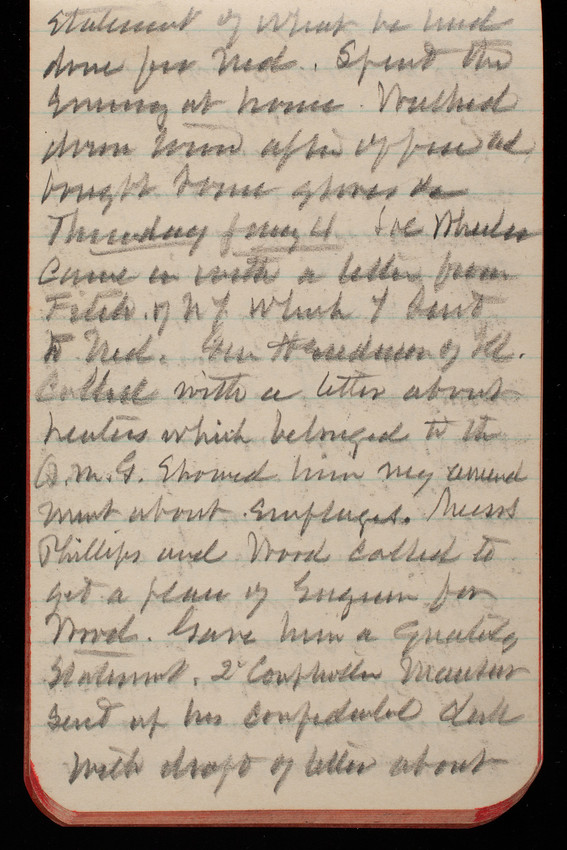 Statement of what he had
done for Ned. Spent the
Evening at home. Walked
down town after office and
bought some gloves &c
Thursday Jany 11 Joe Wheeler
Came in with a letter from
Fitch of NY which I sent
to Ned. Gen of
Called with a letter about
heaters which belonged to the
Q.M.G. Showed him my amend
ment about Employees. Messrs
Phillips and Wood called to
get a place of Engineer for
Wood. Gave him a
Statement. 2d Comptroller Mansur
sent up his confidential clerk
with draft of letter about